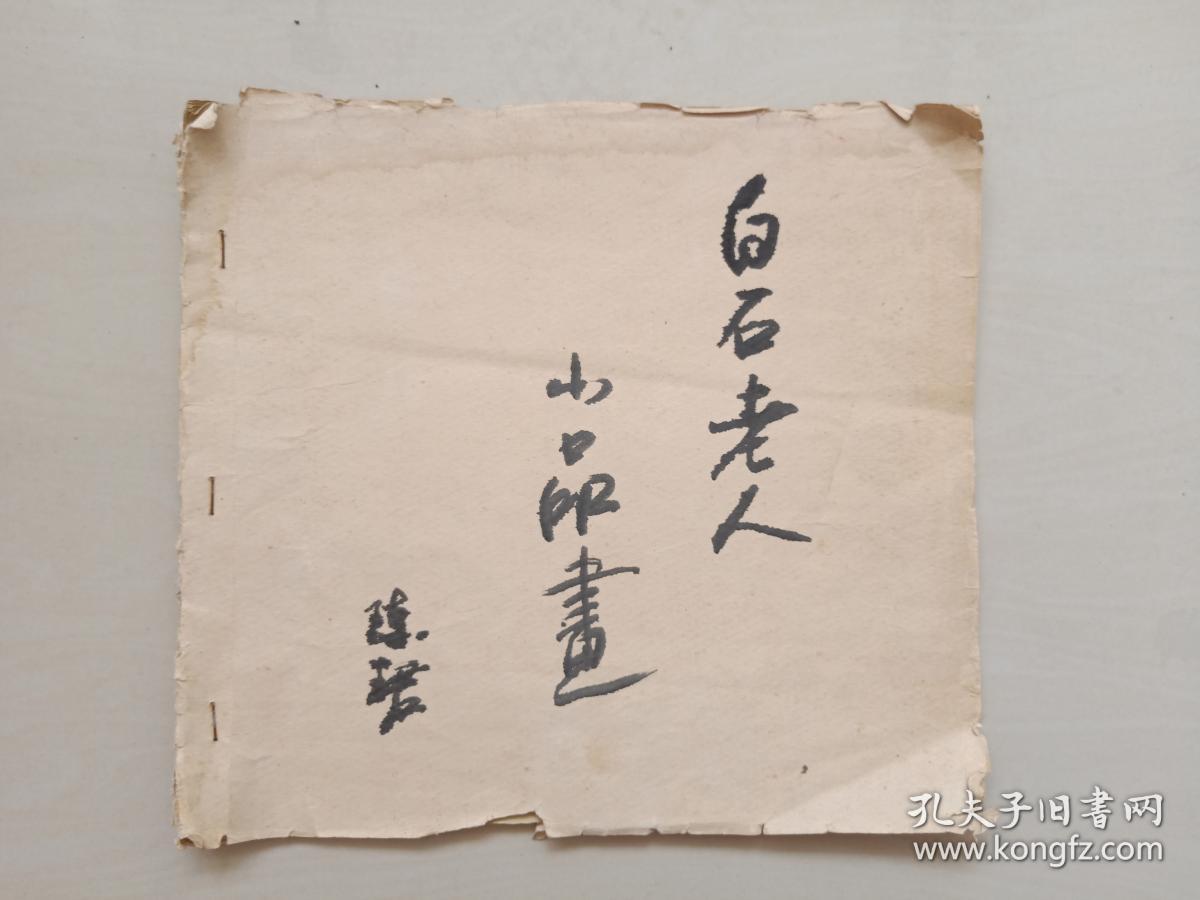 白石老人
小品畫
陈珺
孔夫子旧書网
www.kongfz.com